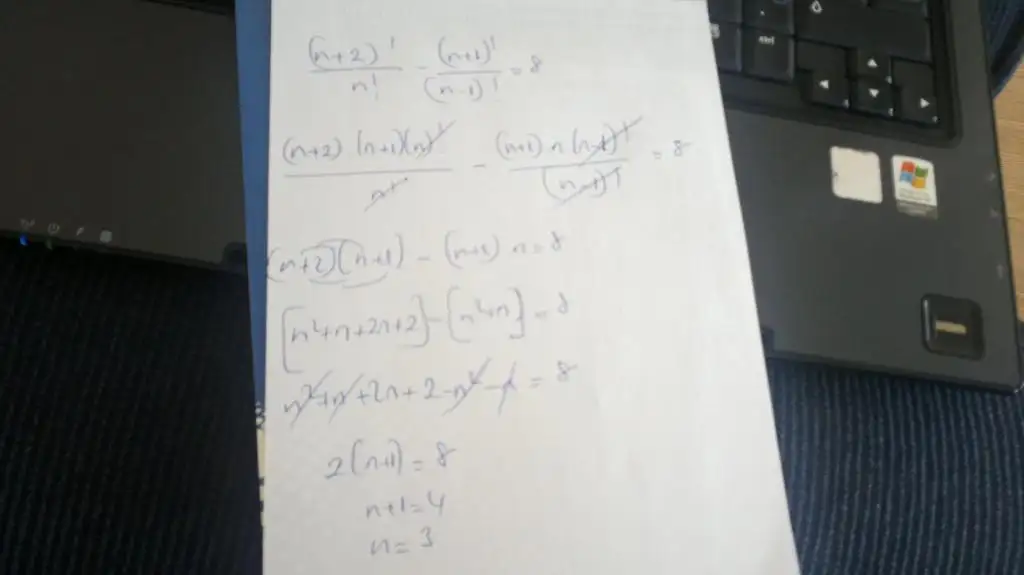 (n+2)!/n! - (n+1)!/(n-1)! = 8
(n+2)(n+1)(n)!/n! - (n+1)n(n-1)!/(n-1)! = 8
(n+2)(n+1) - (n+1)n = 8
[n²+n+2n+2] - [n²+n] = 8
n²+n+2n+2-n²-n = 8
2(n+1) = 8
n+1=4
n=3
ctrl